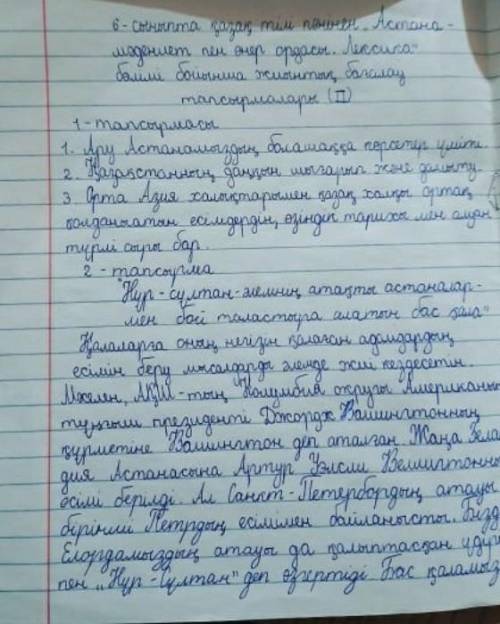 6-сыныпта қазақ тілі пәнінен. Астана-
мәдениет пен өнер ордасы. Лексика"
бөлімі бойынша жиынтық бағалау
тапсырмалары (II)
1-тапсырмасы
1. Ару Астанамыздың болашаққа көрсетер үміті.
2. Қазақстанның даңқын шығарып және дамыту.
3. Орта Азия халықтарымен қазақ халқы ортақ
қолданылатын есімдердің, өзіндік тарихы мен алуан
түрлі сыры бар.
2-тапсырма
"Нұр-сұлтан-әлемнің атақты астаналар-
мен бой таластыра алатын бас қала"
Қалаларға оның негізін қалаған адамдардың
есімін беру мысалдары әлемде жиі кездесетін.
Мәселен, АҚШ-тың Колумбия округы Американың
тұңғыш президенті Джордж Вашингтонның
құрметіне Вашингтон деп аталған. Жаңа Зелан
дия Астанасына Артур Уэлсли Веллингтонның
есімі берілді. Ал Санкт-Петербордың атауы
бірінші Петрдың есімімен байланысты. Бізд
Елордамыздың атауы да қалыптасқан үдері
пен „Нұр-Сұлтан" деп өзгертіді Бас қаламыз